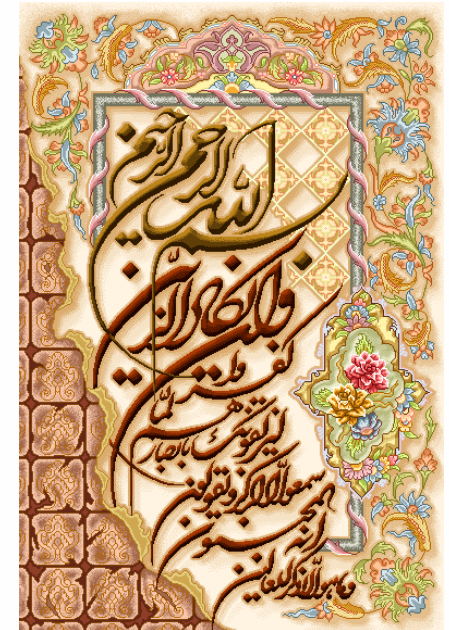 بسم الله الرحمن الرحیم
وان یکاد الذین
کفروا
لیزلقونک بابصارهم لما
سمعوا الذکر و یقولون
انه لمجنون
و ما هو الا ذکر للعالمین